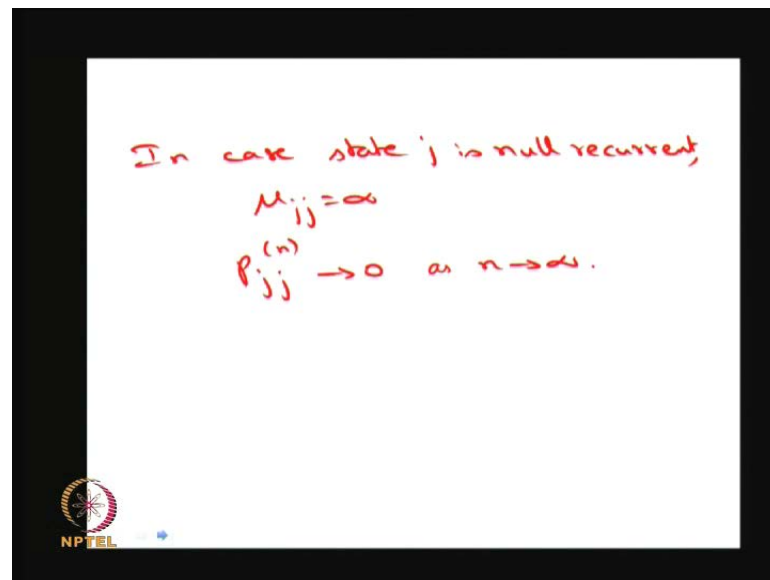 In case state j is null recurrent,
μ_jj = ∞
P_jj^(n) → 0 as n → ∞.
NPTEL